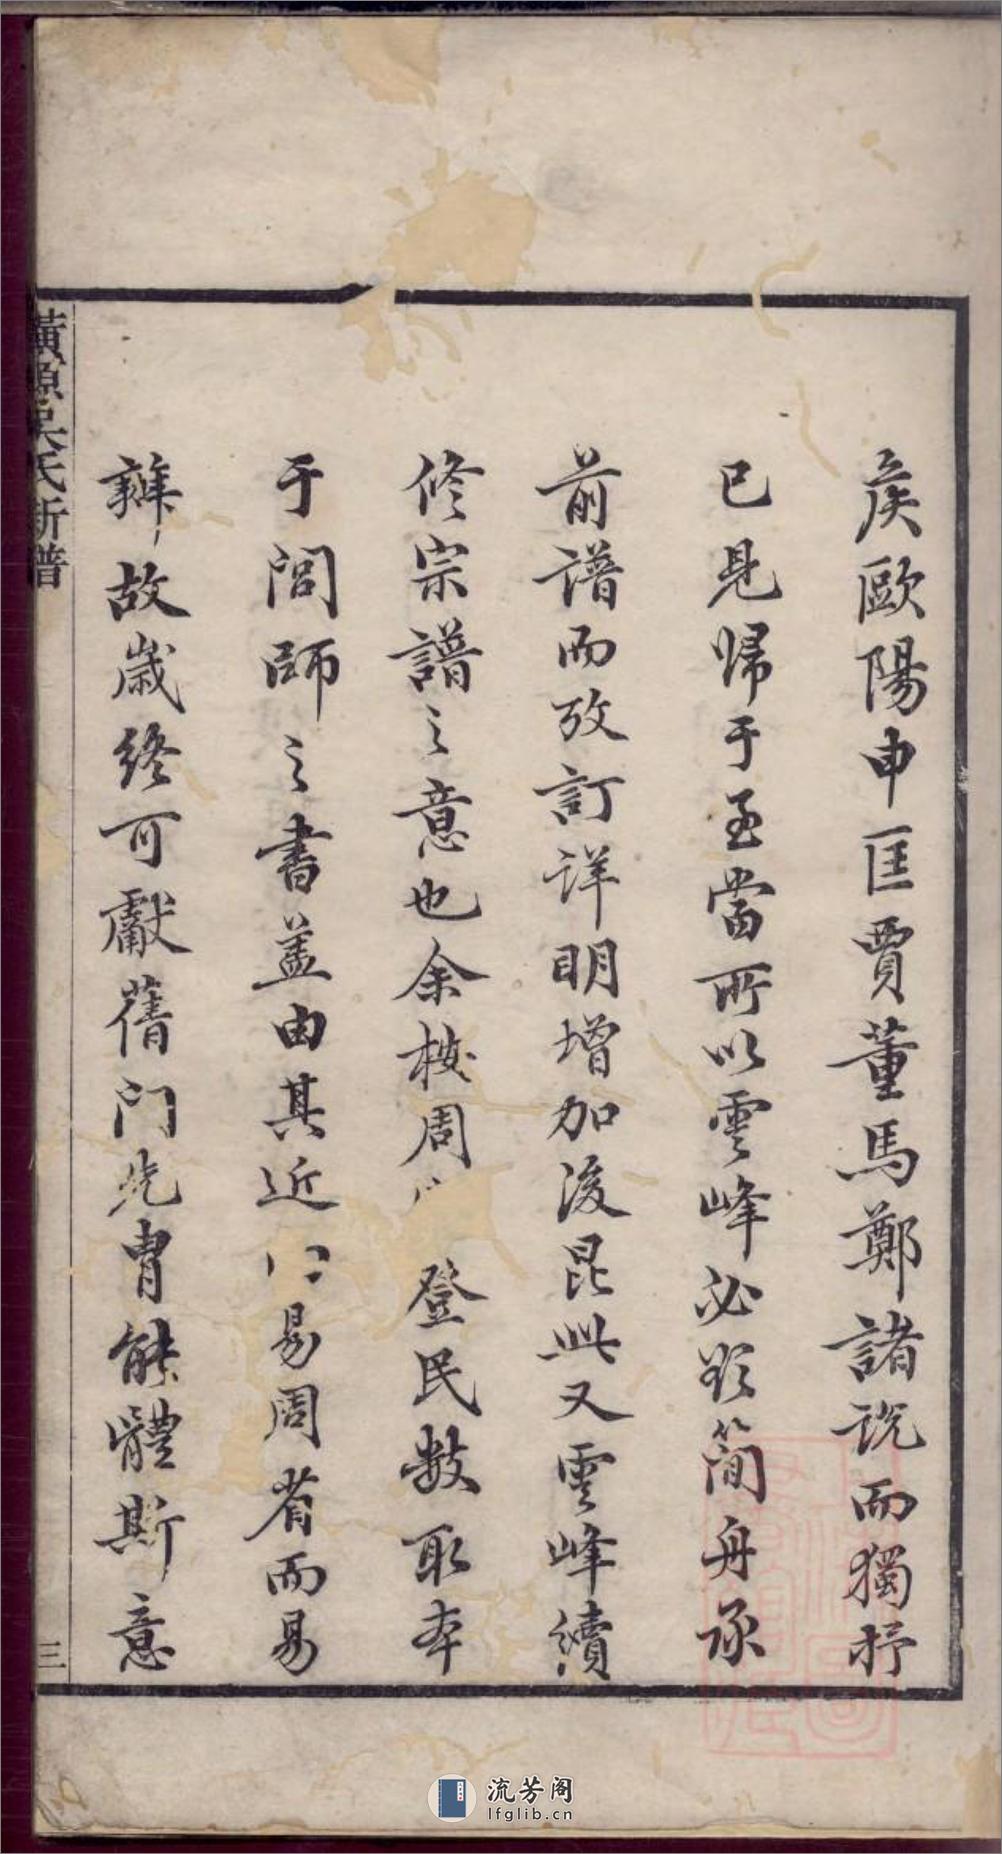 侯歐陽申匡賈董馬鄭諸説而獨抒
已見歸于至當所以雲峰必欵簡舟承
前譜而攷訂詳明增加後昆此又雲峰續
修宗譜之意也余按周 登民數取本
于閭師之書盖由其近 易周有而易
辦故歲終可獻舊門先胄能體斯意
黃源吳氏新譜
三
流芳阁
lfglib.cn